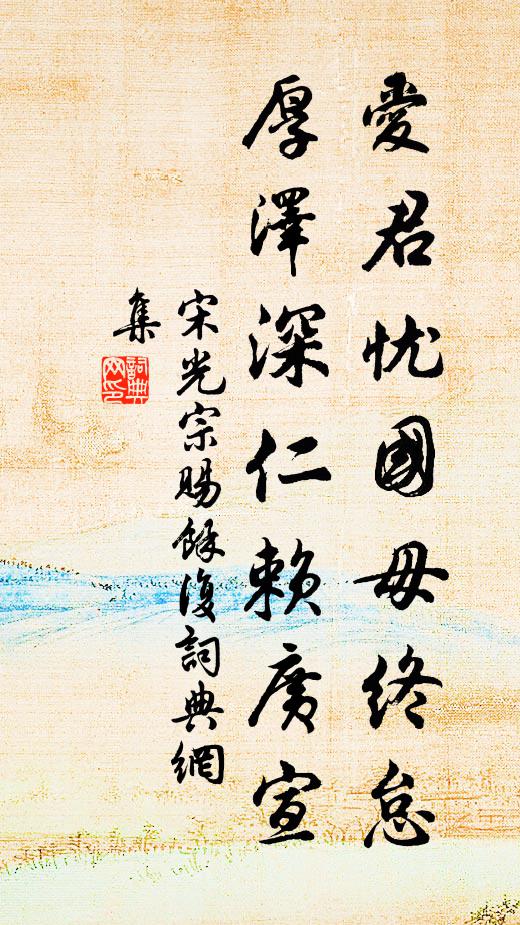 愛君憂國毋終怠
厚澤深仁賴廣宣
宋光宗賜餘復詞典網
集
詞典
网印